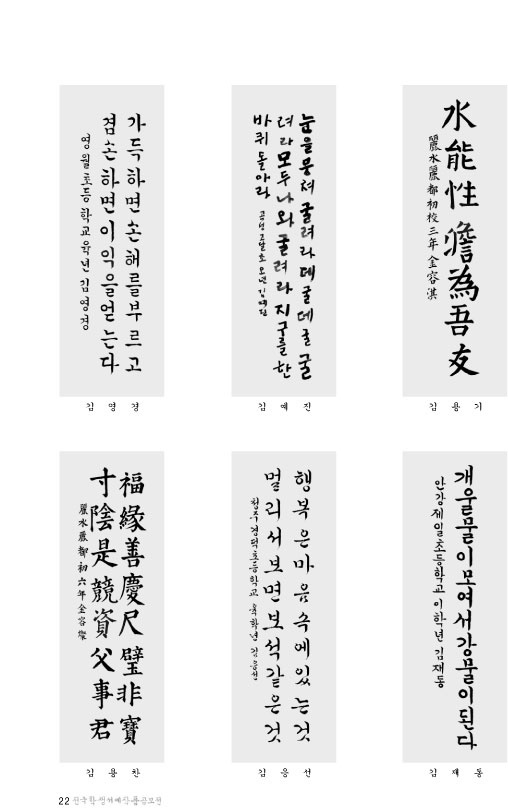 가득하면손해를부르고
겸손하면이익을얻는다
영월초등학교육년김영경
김영경
눈을뭉쳐굴려라데굴데굴굴
려라모두나와굴려라지구를한
바퀴돌아라
곡성고달초오년김예진
김예진
水能性澹為吾友
麗水麗都初校三年金容淇
김용기
福緣善慶尺璧非寶
寸陰是競資父事君
麗水麗都初六年金容燦
김용찬
행복은마음속에있는것
멀리서보면보석같은것
청주경덕초등학교육학년김응선
김응선
개울물이모여서강물이된다
안강제일초등학교이학년김재동
김재동
22 전국학생서예작품공모전